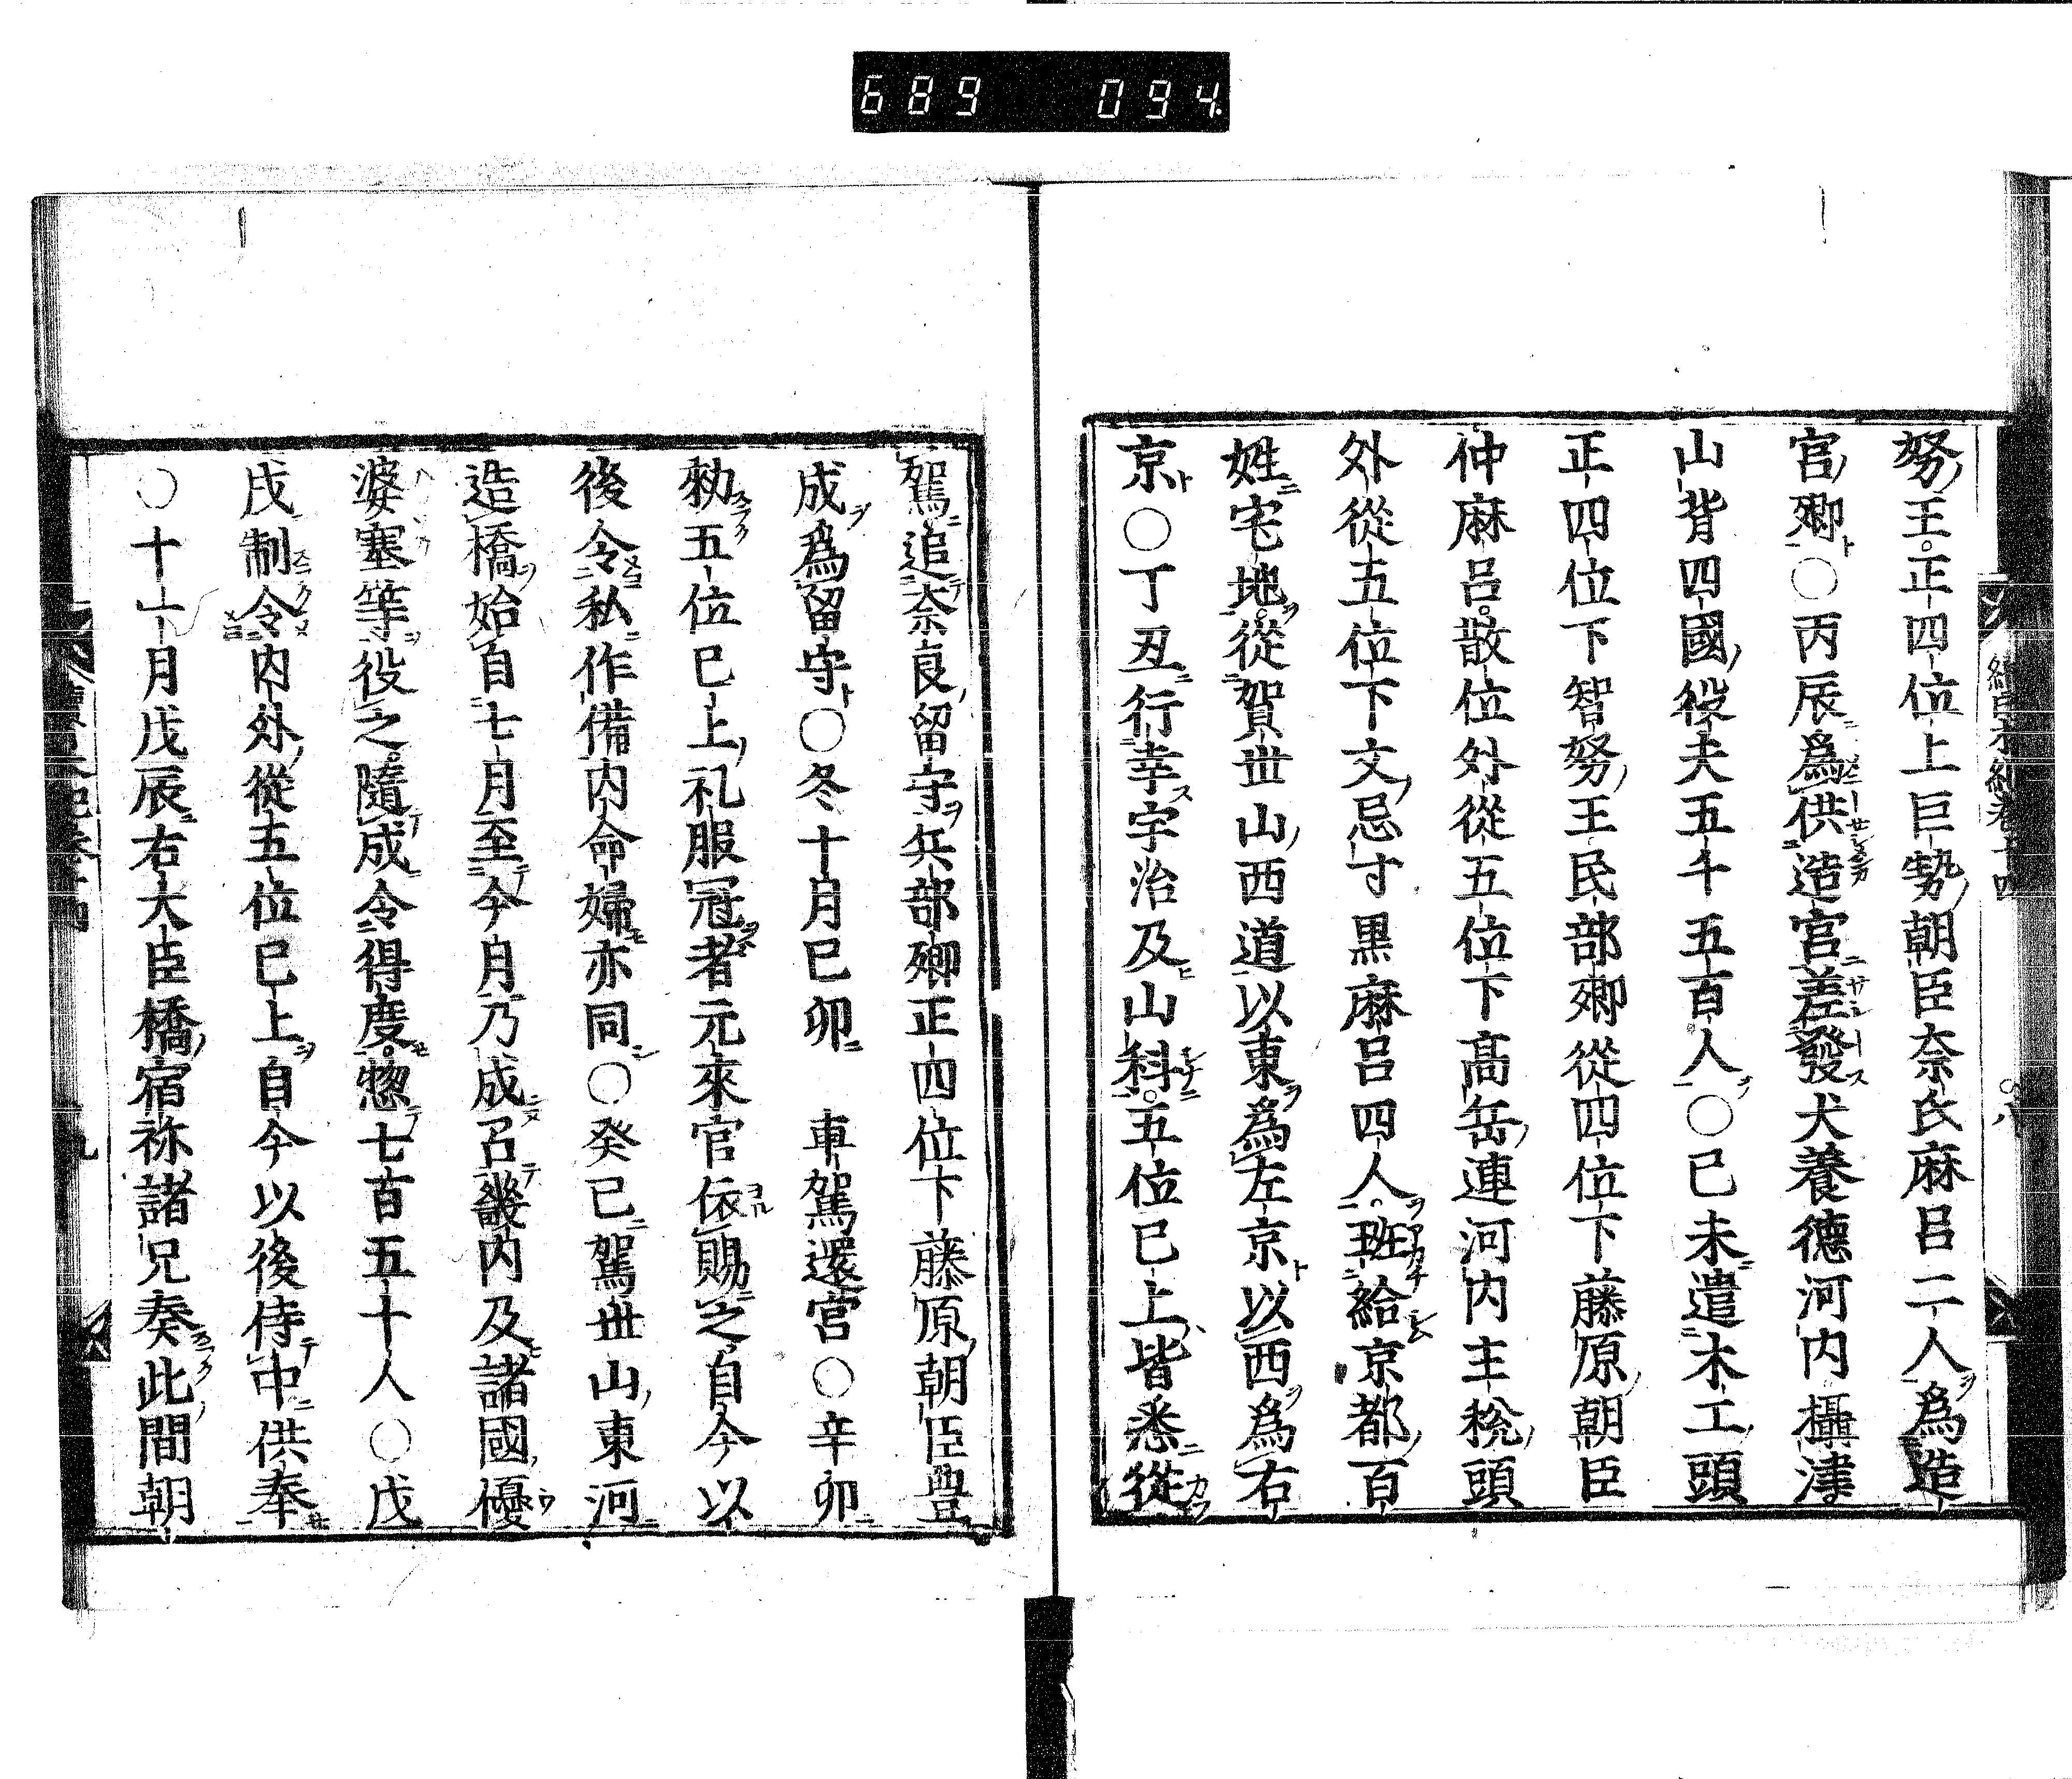 689 094
努王。正四位上巨勢朝臣奈氐麻呂二人爲造
宮卿〇丙辰爲供造宮差發大養德河内攝津
山背四國役夫五千五百人〇己未遣木工頭
正四位下智努王民部卿從四位下藤原朝臣
仲麻呂。散位外從五位下高岳連河内主稅頭
外從五位下文忌寸黒麻呂四人。班給京都百
姓宅地。從賀世山西道以東爲左京以西爲右
京〇丁丑行幸宇治及山科。五位已上皆悉從
駕追奈良留守兵部卿正四位下藤原朝臣豊
成爲留守〇冬十月己卯 車駕還宮〇辛卯
勑五位已上礼服冠者元來官依賜之自今以
後令私作備内命婦亦同〇癸巳駕世山東河
造橋始自七月至今月乃成召畿内及諸國優
婆塞等役之。隨成令得度。惣七百五十人〇戊
戌制令内外從五位已上自今以後侍中供奉
〇十一月戊辰右大臣橘宿祢諸兄奏此間朝
九